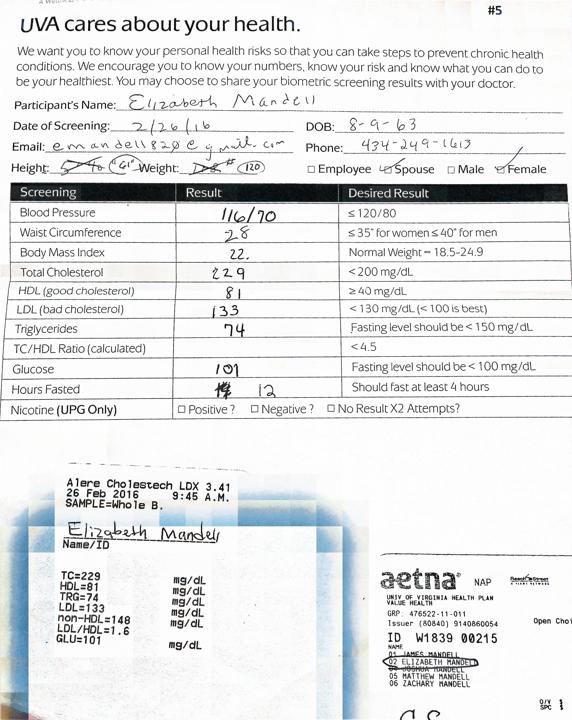 #5
UVA cares about your health.
We want you to know your personal health risks so that you can take steps to prevent chronic health
conditions. We encourage you to know your numbers, know your risk and know what you can do to
be your healthiest. You may choose to share your biometric screening results with your doctor.
Participant's Name: Elizabeth Mandell
Date of Screening: 2/26/16 DOB: 8-9-63
Email: emandell820@gmail.com Phone: 434-249-1613
Height: 61" Weight: # 120 □ Employee ☑ Spouse □ Male ☑ Female
Screening Result Desired Result
Blood Pressure 116/70 ≤ 120/80
Waist Circumference 28 ≤ 35" for women ≤ 40" for men
Body Mass Index 22. Normal Weight = 18.5-24.9
Total Cholesterol 229 < 200 mg/dL
HDL (good cholesterol) 81 ≥ 40 mg/dL
LDL (bad cholesterol) 133 < 130 mg/dL (< 100 is best)
Triglycerides 74 Fasting level should be < 150 mg/dL
TC/HDL Ratio (calculated) < 4.5
Glucose 101 Fasting level should be < 100 mg/dL
Hours Fasted 12 Should fast at least 4 hours
Nicotine (UPG Only) □ Positive ? □ Negative ? □ No Result X2 Attempts?
Alere Cholestech LDX 3.41
26 Feb 2016 9:45 A.M.
SAMPLE=Whole B.
Elizabeth Mandell
Name/ID
TC=229 mg/dL
HDL=81 mg/dL
TRG=74 mg/dL
LDL=133 mg/dL
non-HDL=148 mg/dL
LDL/HDL=1.6
GLU=101 mg/dL
aetna NAP
UNIV OF VIRGINIA HEALTH PLAN
VALUE HEALTH
GRP: 476522-11-011
Issuer (80840) 9140860054
Open Choi
ID W1839 00215
NAME
01 JAMES MANDELL
02 ELIZABETH MANDELL
04 JOSHUA MANDELL
05 MATTHEW MANDELL
06 ZACHARY MANDELL
O/V $
SPC $